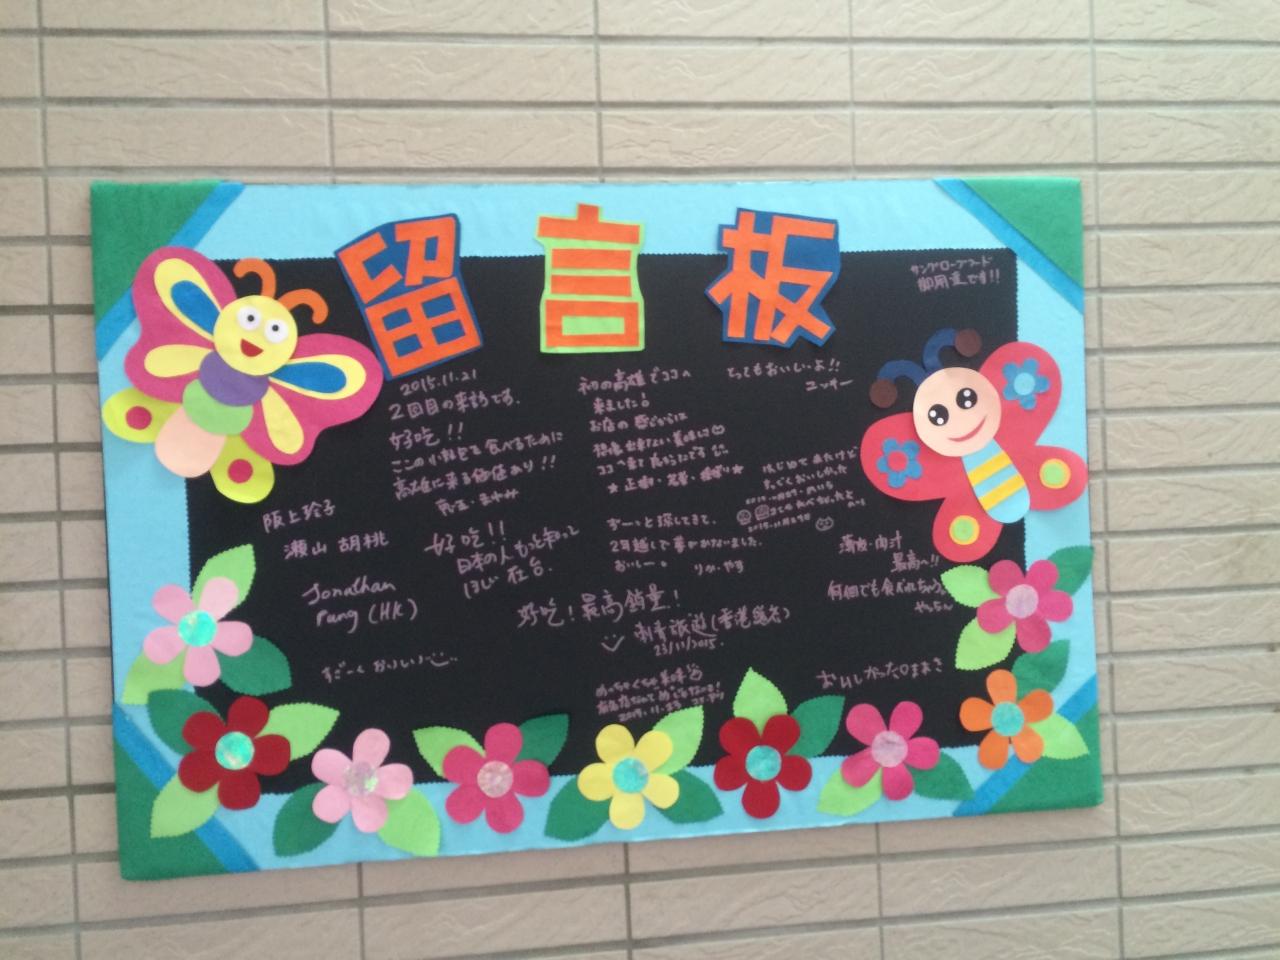 留言板
サンプローブフード
御用達です!!
2015.11.21
2回目の来訪です.
好吃!!
この小籠包を食べるために
高雄に来る価値あり!!
初の高雄でココへ
来ました!
お店の感じからは
想像出来ない美味しさ
ココへ来て良かったです
とってもおいしいよ!!
ユッキー
はじめて来たけど
すっごくおいしかった
阪上玲子
瀬山 胡桃
Jonathan
Pang (HK)
すごーくおいしい
好吃!!
日本の人もっと知って
ほしい 在台.
ずーっと探してきて、
2年越しで夢がかないました。
おいしー。 りか・やす
好吃!最高銷量!
旅遊(香港
23/11/2015.
めっちゃくちゃ美味
薄皮・肉汁
最高〜!!
何個でも食べれちゃう。
やっちん
おいしかった まさき